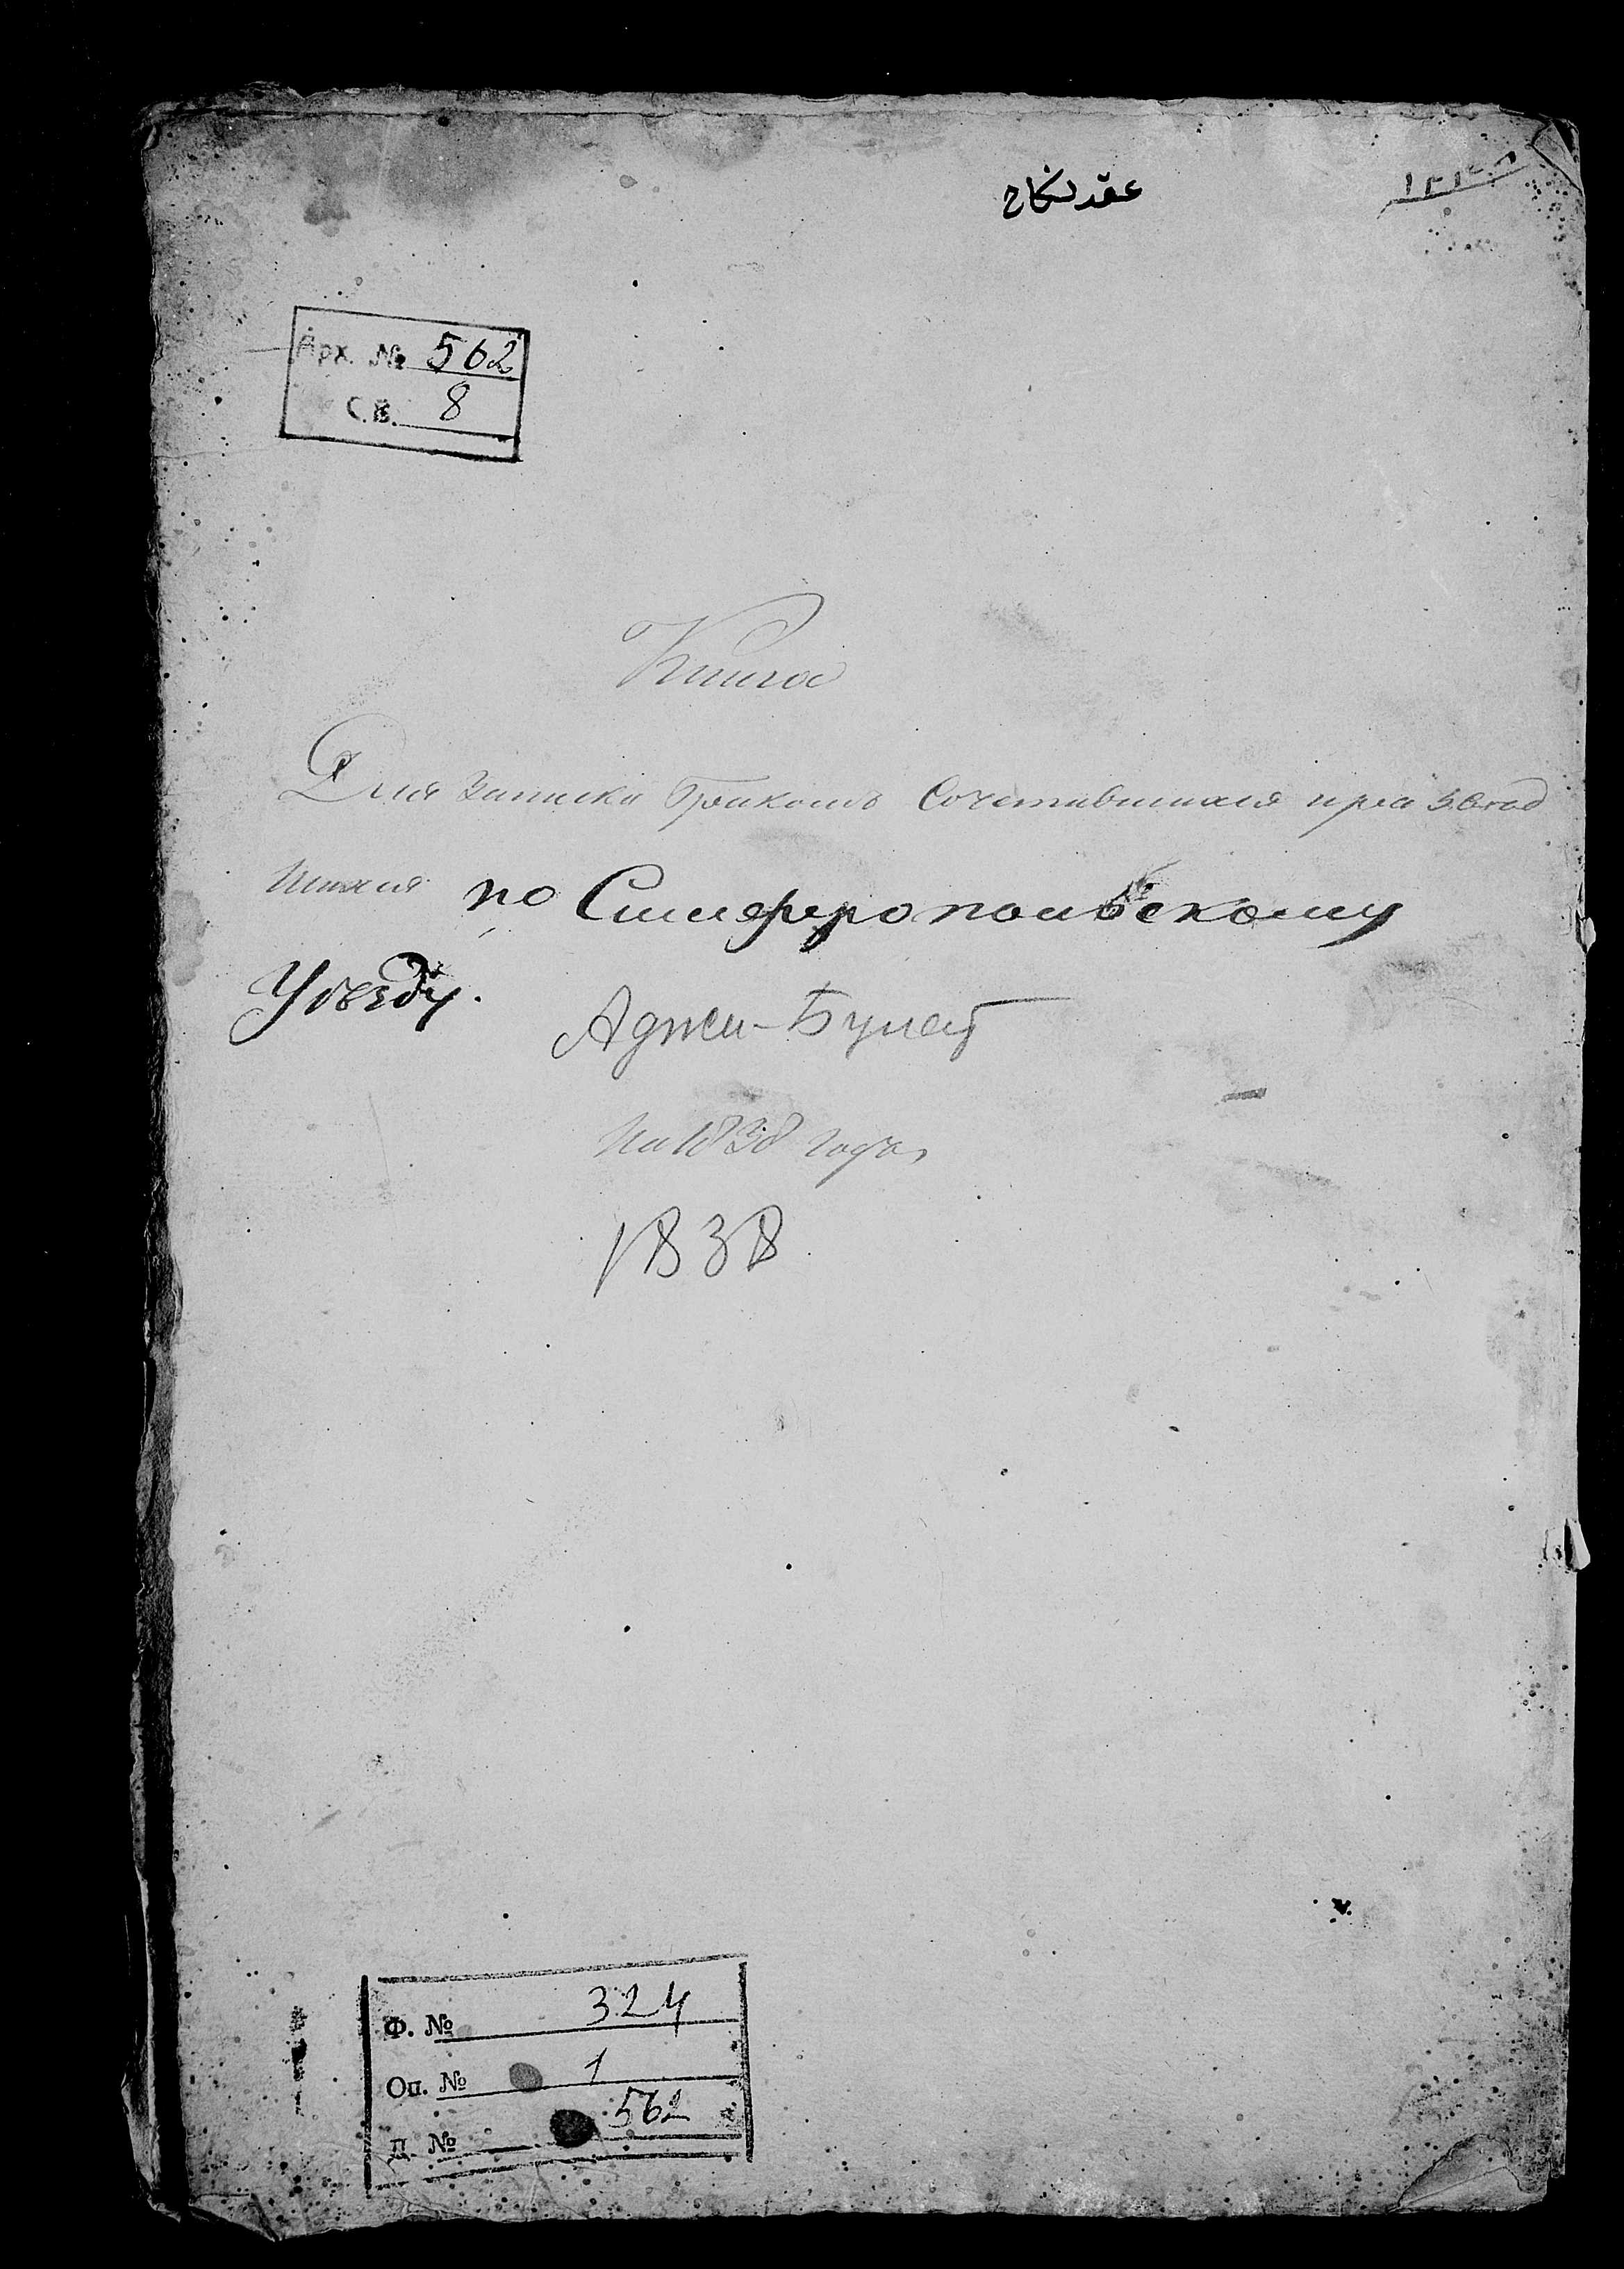 عقد نكاح
Арх. № 562
С.В. 8
Книга
Для записки бракомъ Сочетавшихся и развод
шихся по Симферопольскому
Уѣзду.
Аджи-Булат
На 1838 годъ
1838
Ф. № 324
Оп. № 1
Д. № 562